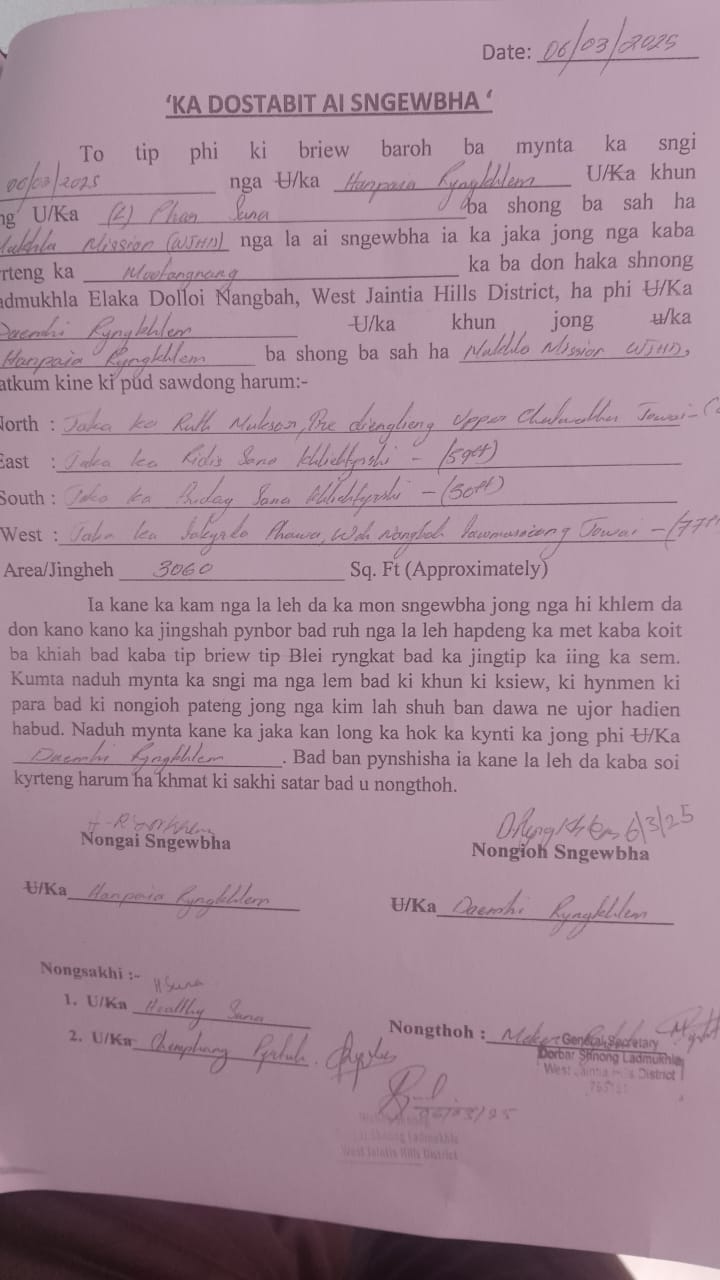 Date: 06/03/2025
'KA DOSTABIT AI SNGEWBHA '
To tip phi ki briew baroh ba mynta ka sngi
06/03/2025 nga U/ka Hanpaia Ryngkhlem U/Ka khun
ng U/Ka (L) Phan Sana ba shong ba sah ha
Mukhla Mission (WJHD) nga la ai sngewbha ia ka jaka jong nga kaba
rteng ka Mootangnang ka ba don haka shnong
admukhla Elaka Dolloi Nangbah, West Jaintia Hills District, ha phi U/Ka
Daemhi Ryngkhlem U/ka khun jong u/ka
Hanpaia Ryngkhlem ba shong ba sah ha Mukhla Mission WJHD,
atkum kine ki pud sawdong harum:-
North : Jaka ka Ruth Mukson, Upper Jowai
East : Jaka ka Ridis Sana Khliehtyrshi - (59ft)
South : Jaka ka Priday Sana Khliehtyrshi - (50ft)
West : Jaka ka Phawa, Wah Nongbah Jowai - (77ft
Area/Jingheh 3060 Sq. Ft (Approximately)
Ia kane ka kam nga la leh da ka mon sngewbha jong nga hi khlem da
don kano kano ka jingshah pynbor bad ruh nga la leh hapdeng ka met kaba koit
ba khiah bad kaba tip briew tip Blei ryngkat bad ka jingtip ka iing ka sem.
Kumta naduh mynta ka sngi ma nga lem bad ki khun ki ksiew, ki hynmen ki
para bad ki nongioh pateng jong nga kim lah shuh ban dawa ne ujor hadien
habud. Naduh mynta kane ka jaka kan long ka hok ka kynti ka jong phi U/Ka
Daemhi Ryngkhlem. Bad ban pynshisha ia kane la leh da kaba soi
kyrteng harum ha khmat ki sakhi satar bad u nongthoh.
6/3/25
Nongai Sngewbha Nongioh Sngewbha
U/Ka Hanpaia Ryngkhlem U/Ka Daemhi Ryngkhlem
Nongsakhi :- H Sana
1. U/Ka Healthy Sana
2. U/Ka Chemphang Pyrtuh.
Nongthoh :
General Secretary
Dorbar Shnong Ladmukhla
West Jaintia Hills District
06/03/25
Shnong Ladmukhla
West Jaintia Hills District